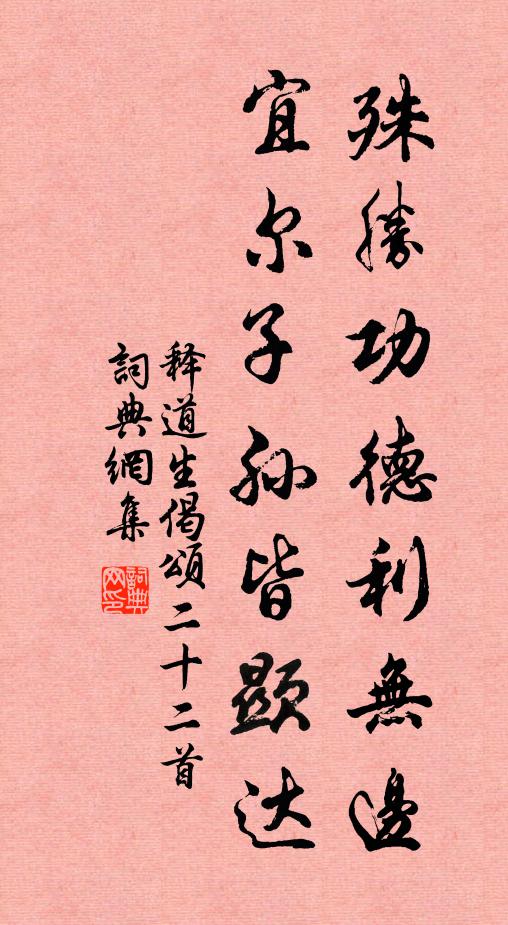 殊勝功德利無邊
宜尔子孙皆顯达
释道生偈頌二十二首
詞典網集
詞典网印